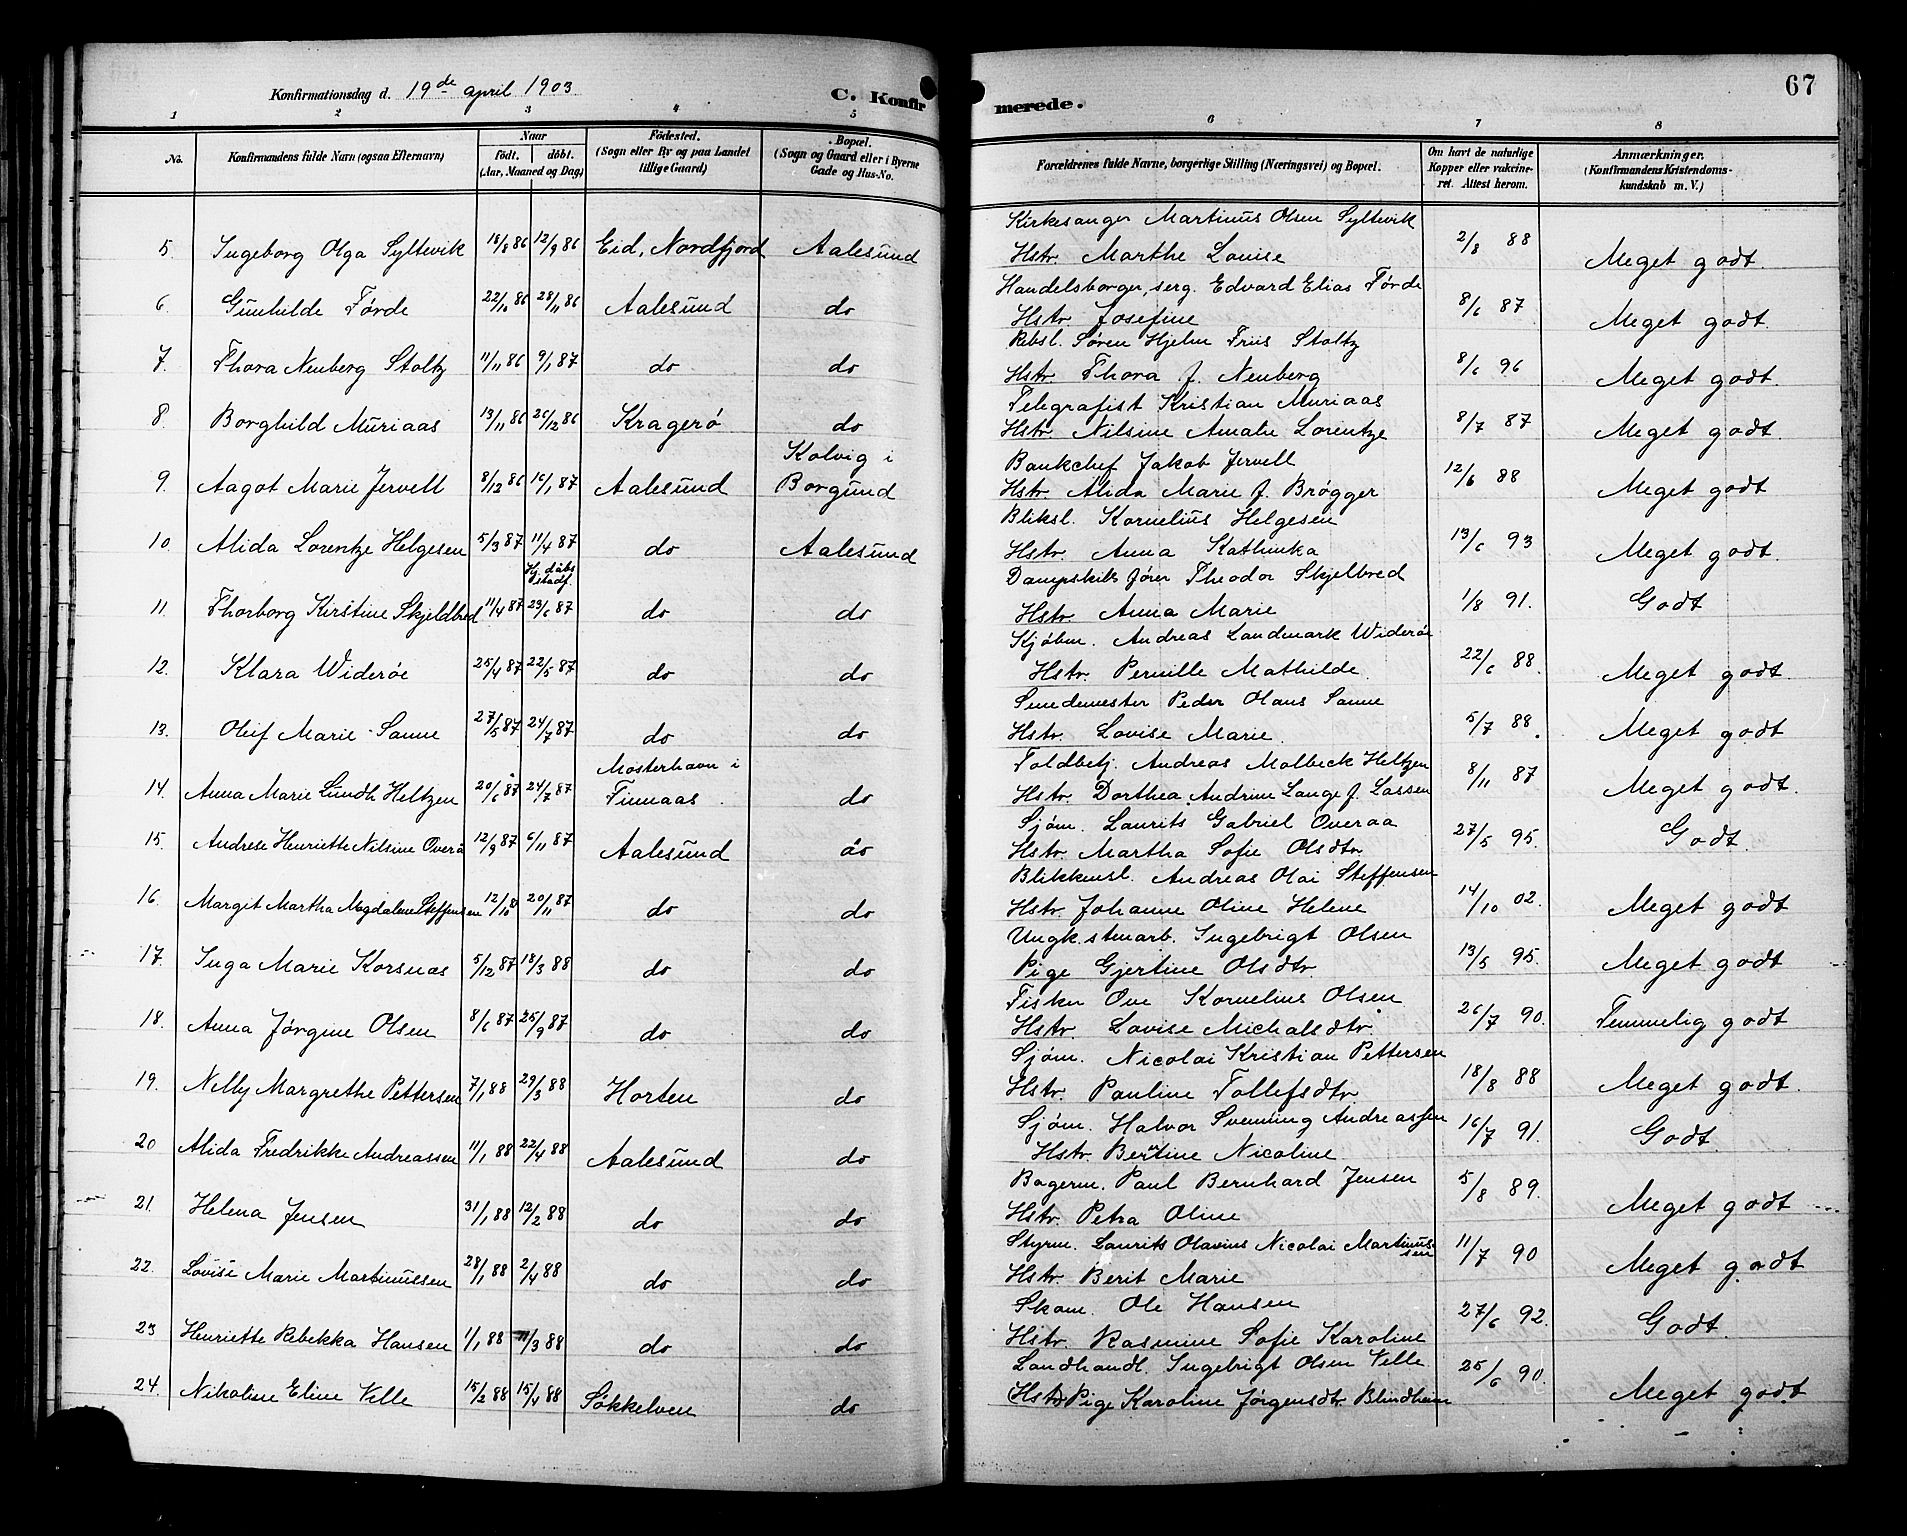 67
Konfirmationsdag d. 19de april 1903
C. Konfirmerede.
1 2 3 4 5 6 7 8
No. Konfirmandens fulde Navn (ogsaa Efternavn) Naar födt. döbt. (Aar, Maaned og Dag) Födested. (Sogn eller By og paa Landet tillige Gaard) Bopæl. (Sogn og Gaard eller i Byerne Gade og Hus-No. Forældrenes fulde Navne, borgerlige Stilling (Næringsvei) og Bopæl. Om havt de naturlige Kopper eller vakcineret. Attest herom. Anmærkninger. (Konfirmandens Kristendomskundskab m. V.)
Kirkesanger Martinus Olsen Syltevik
5. Ingeborg Olga Syltevik 18/8 86 12/9 86 Eid, Nordfjord Aalesund Hstr. Marthe Louise 2/8 88 Meget godt.
Handelsborger, serg. Edvard Elias Førde
6. Gunhilde Førde 22/10 86 28/11 86 Aalesund do Hstr. Josefine 8/6 87 Meget godt.
Rebsl. Søren Hjelm Friis Stoltz
7. Thora Neuberg Stoltz 11/11 86 9/1 87 do do Hstr. Thora f. Neuberg 8/6 96 Meget godt.
Telegrafist Kristian Muriaas
8. Borghild Muriaas 13/11 86 26/12 86 Kragerö do Hstr. Nilsine Amalie Lorentze 8/7 87 Meget godt.
Kolvig i Bankchef Jakob Jervell
9. Aagot Marie Jervell 8/12 86 16/1 87 Aalesund Borgund Hstr. Alida Marie f. Brøgger 12/6 88 Meget godt
Bliksl. Kornelius Helgesen
10. Alida Lorentze Helgesen 5/3 87 11/4 87 do Aalesund Hstr. Anna Kathinka 13/6 93 Meget godt.
Hj. døbt stadf. Dampskibsfører Theodor Skjelbred
11. Thorborg Kirstine Skjeldbred 11/4 87 23/6 87 do do Hstr. Anna Marie 1/8 91. Godt
Kjøbm. Andreas Landmark Widerøe
12. Klara Widerøe 25/4 87 22/5 87 do do Hstr. Pernille Mathilde 22/6 88. Meget godt.
Smedemester Peder Olaus Sanne
13. Oluf Marie Sanne 27/5 87 24/7 87 do do Hstr. Lovise Marie 5/7 88. Meget godt
Mosterhavn i Toldbetj. Andreas Molbeck Heltzen
14. Anna Marie Lundh Heltzen 20/6 87 24/7 87 Finnaas do Hstr. Dorthea Andrine Lange f. Lassen 8/11 87 Meget godt.
Sjøm. Laurits Gabriel Overaa
15. Andrese Henriette Nilsine Overå 12/9 87 6/11 87 Aalesund do Hstr. Martha Sofie Olsdtr. 27/5 95. Godt.
Blikkensl. Andreas Olai Steffensen
16. Margit Martha Magdalene Steffensen 12/10 8 20/11 87 do do Hstr. Johanne Oline Helene 14/10 02. Meget godt
Ungk. stenarb. Ingebrigt Olsen
17. Inga Marie Korsnas 5/12 87 18/3 88 do do Pige Gjertine Olsdtr. 13/5 95. Meget godt
Fisker Ove Kornelius Olsen
18. Anna Jørgine Olsen 8/6 87 25/9 87 do do Hstr. Lovise Michalsdtr. 26/7 90. Temmelig godt
Sjøm. Nicolai Kristian Pettersen
19. Nelly Margrethe Pettersen 7/1 88 29/3 88 Horten do Hstr. Pauline Tollefsdtr. 18/8 88 Meget godt.
Sjøm. Halvor Svenning Andreassen
20 Alida Fredrikke Andreassen 11/1 88 22/4 88 Aalesund do Hstr. Bertine Nicoline 16/7 91. Godt.
Bagerm. Paul Bernhard Jensen
21. Helena Jensen 31/1 88 12/2 88 do do Hstr. Petra Oline 5/8 89. Meget godt
Styrm. Laurits Olavius Nicolai Martinussen
22. Lovise Marie Martinussen 28/1 88 2/4 88 do do Hstr. Berit Marie 11/7 90 Meget godt
Skom. Ole Hansen
23 Henriette Rebekka Hansen 1/1 88 11/3 88 do do Hstr. Rasmine Sofie Karoline 27/6 92. Godt.
Landhandl. Ingebrigt Olsen Velle
24. Nikoline Eline Velle 15/2 88 15/4 88 Søkkelven do (Hstr) Pige Karoline Jørgensdtr. Blindheim 25/6 90. Meget godt.